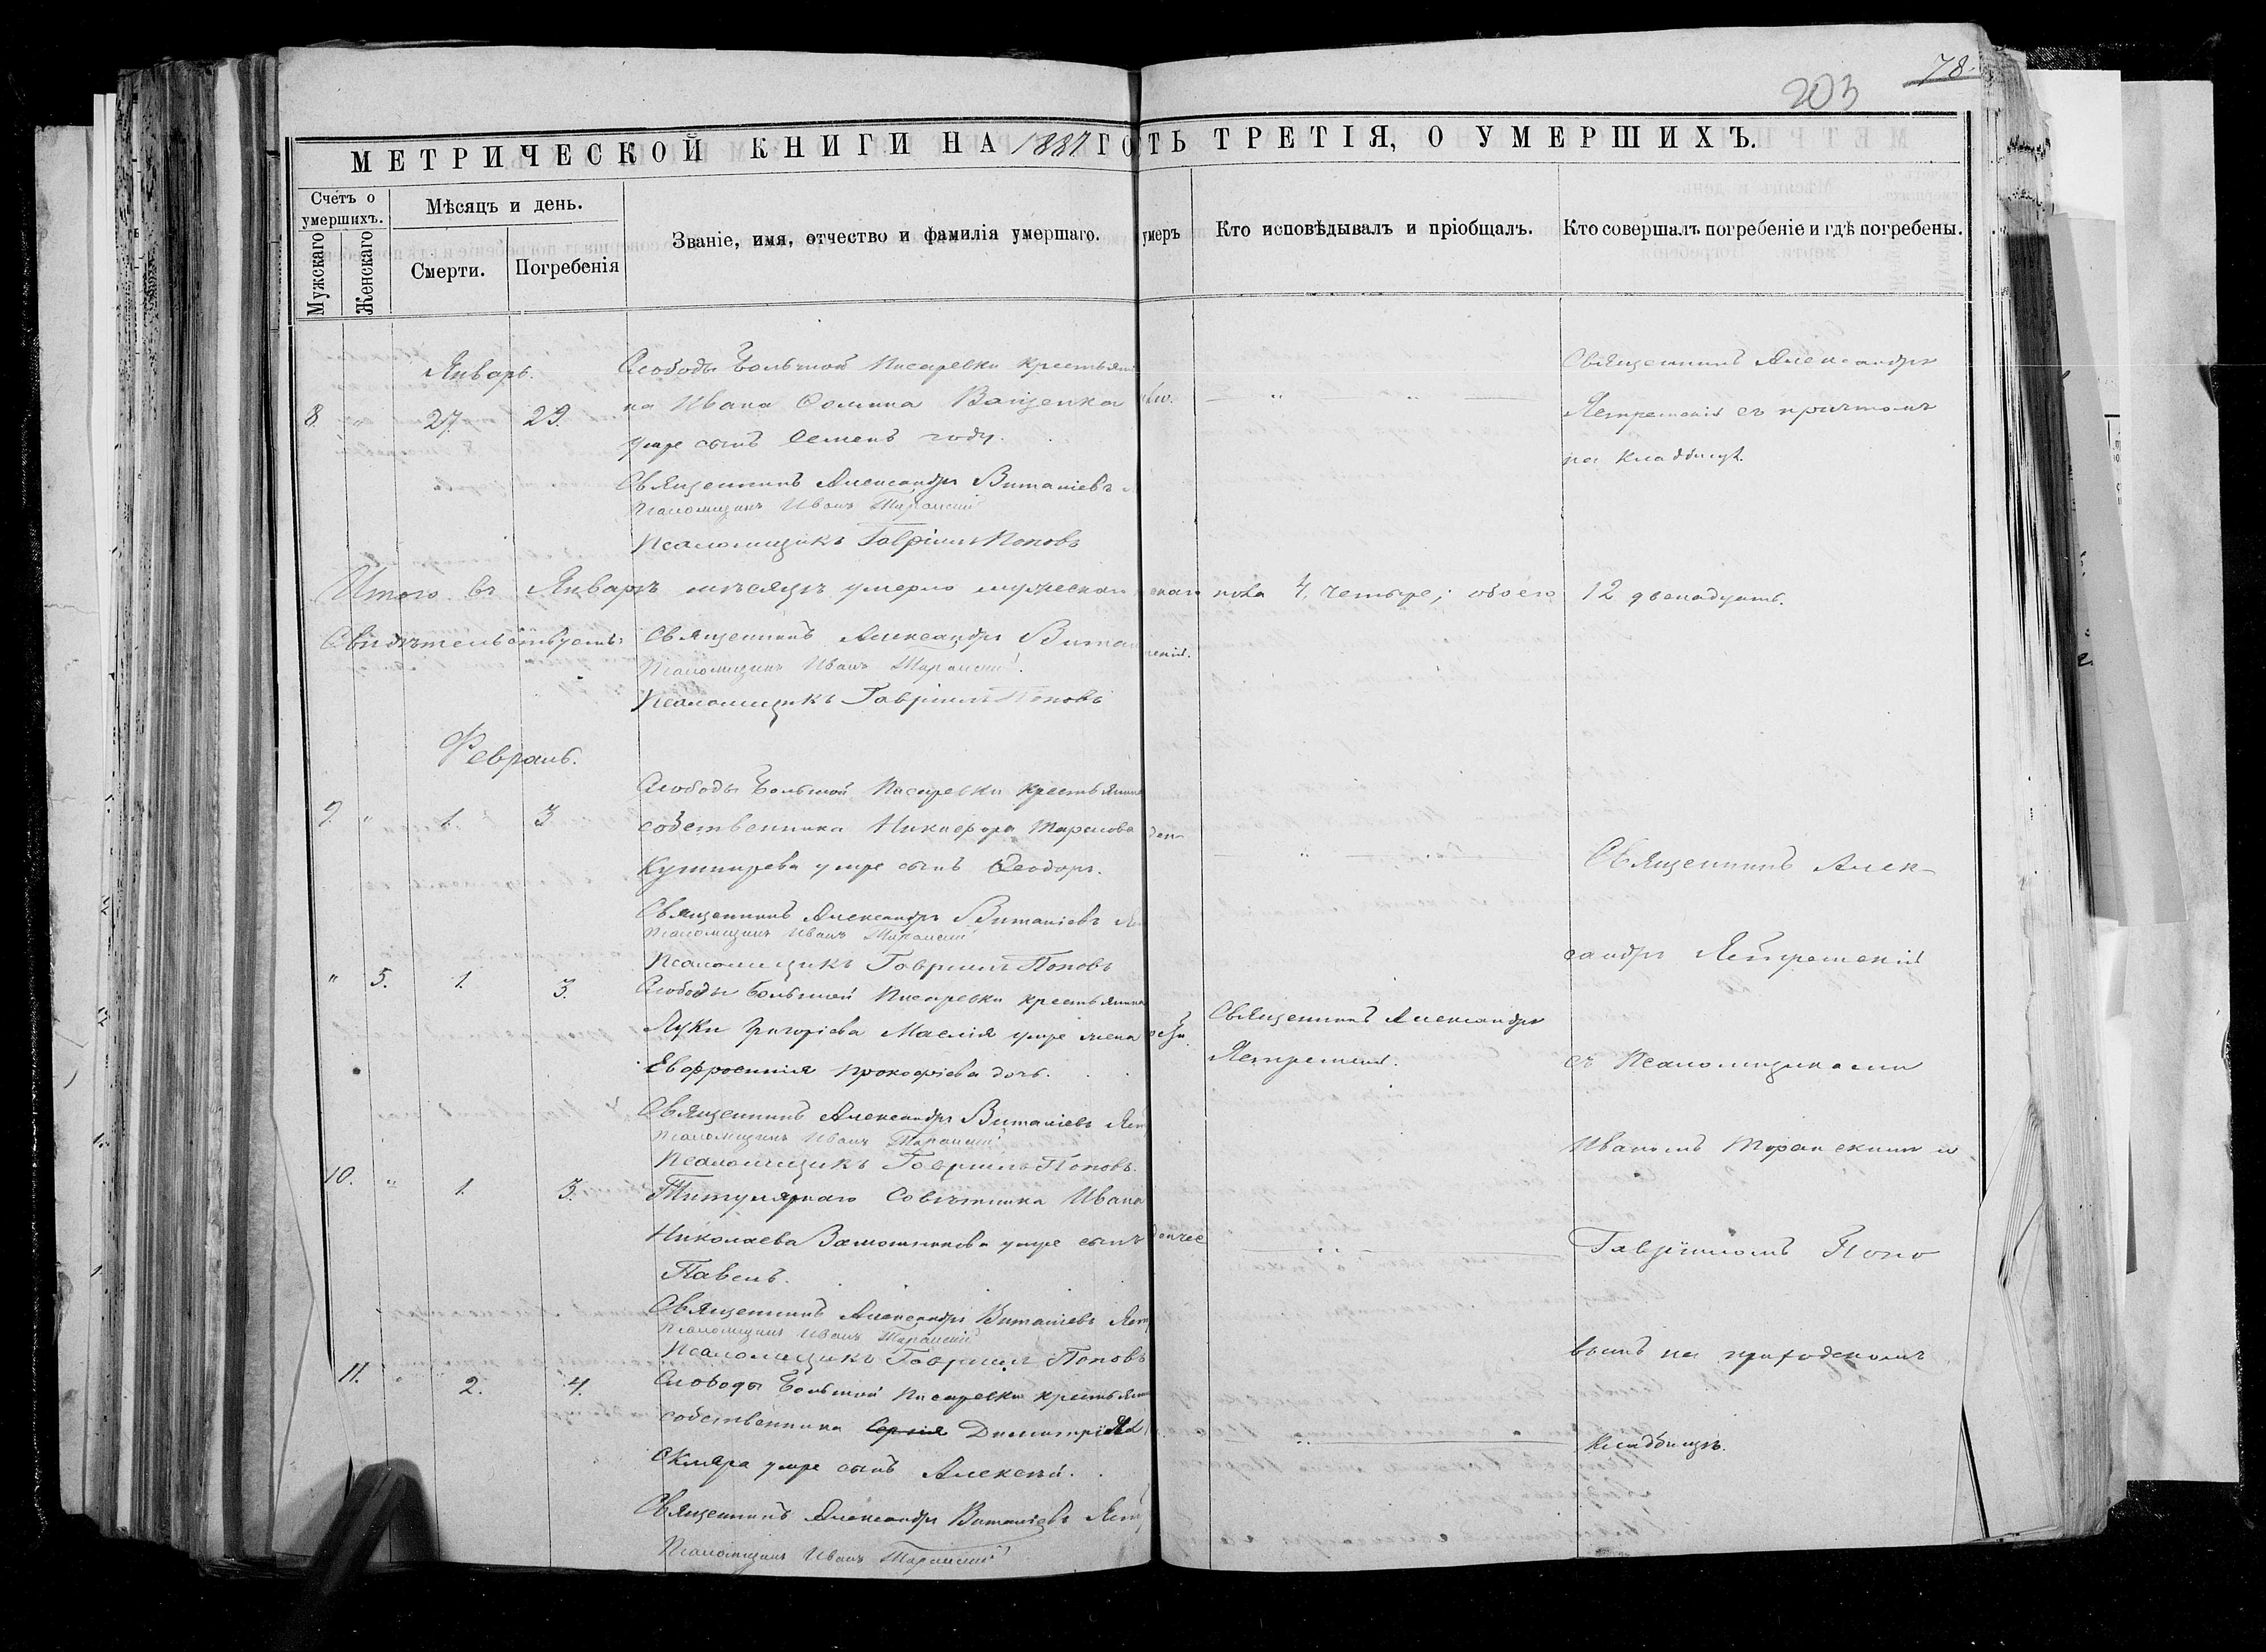 78.
203
МЕТРИЧЕСКОЙ КНИГИ НА 1887 ГО
ТЬ ТРЕТІЯ, О УМЕРШИХЪ.
Счетъ о умершихъ.
Мужскаго
Женскаго
Мѣсяцъ и день.
Смерти.
Погребенія
Званіе, имя, отчество и фамилія умершаго.
умеръ
Кто исповѣдывалъ и пріобщалъ.
Кто совершалъ погребеніе и гдѣ погребены.
Январь.
8. " 27. 29.
Слободы Большой Писаревки крестьяни
на Ивана Ѳомина Ващенка
умре сынъ Семенъ году.
Священникъ Александръ
Ястремскій съ причтомъ
на кладбищѣ.
Священникъ Александръ Виталіевъ
Псаломщикъ Иванъ
Псаломщикъ Гавріилъ Поповъ
Итого въ Январѣ мѣсяцѣ умерло мужескаго
скаго пола 4, четыре; обоего 12 двенадцать.
Свидѣтельствуемъ: Священникъ Александръ Витал
Псаломщикъ Иванъ
Псаломщикъ Гавріилъ Поповъ
Февраль.
9. " 1. 3
Слободы Большой Писаревки крестьянина
собственника Никифора Тарасова
Кушнирева умре сынъ Ѳеодоръ.
Священникъ Александръ Виталіевъ Я
Псаломщикъ Иванъ
Псаломщикъ Гавріилъ Поповъ
" 5. 1. 3.
Слободы Большой Писаревки крестьянина
Луки Григоріева Маслія умре жена
Евфросинія Прокофіева дочь.
Священникъ Александръ
Ястремскій.
Священникъ Александръ Виталіевъ Яст
Псаломщикъ Иванъ
Псаломщикъ Гавріилъ Поповъ.
10. " 1. 3.
Титулярнаго Совѣтника Ивана
Николаева умре сынъ
Павелъ.
Священникъ Александръ Виталіевъ Яст
Псаломщикъ Иванъ
Псаломщикъ Гавріилъ Поповъ
11. " 2. 4.
Слободы Большой Писаревки крестьяни
собственника Сергія Димитріева
Скляра умре сынъ Алексѣй.
Священникъ Александръ Виталіевъ Яст
Псаломщикъ Иванъ
Священникъ Алек-
сандръ Ястремскій
съ Псаломщиками
Иваномъ и
Гавріиломъ Попо
вымъ на приходскомъ
кладбищѣ.